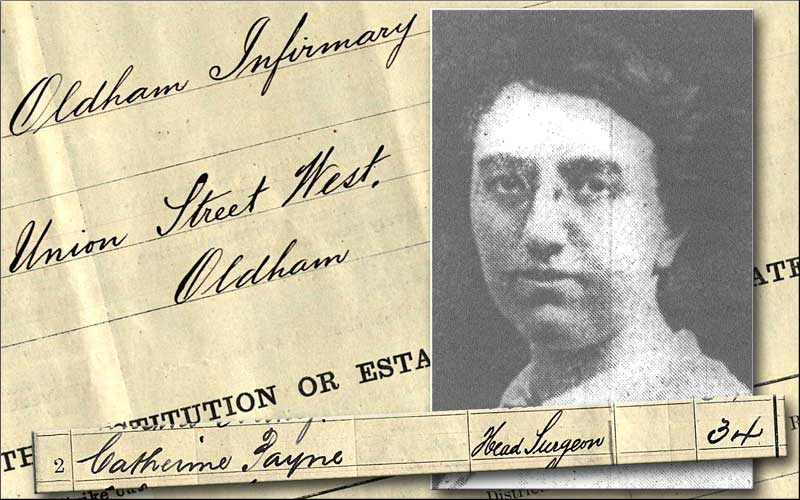 Oldham Infirmary
Union Street West.
Oldham
INSTITUTION OR ESTA
2 Catherine Payne Head Surgeon 34
District